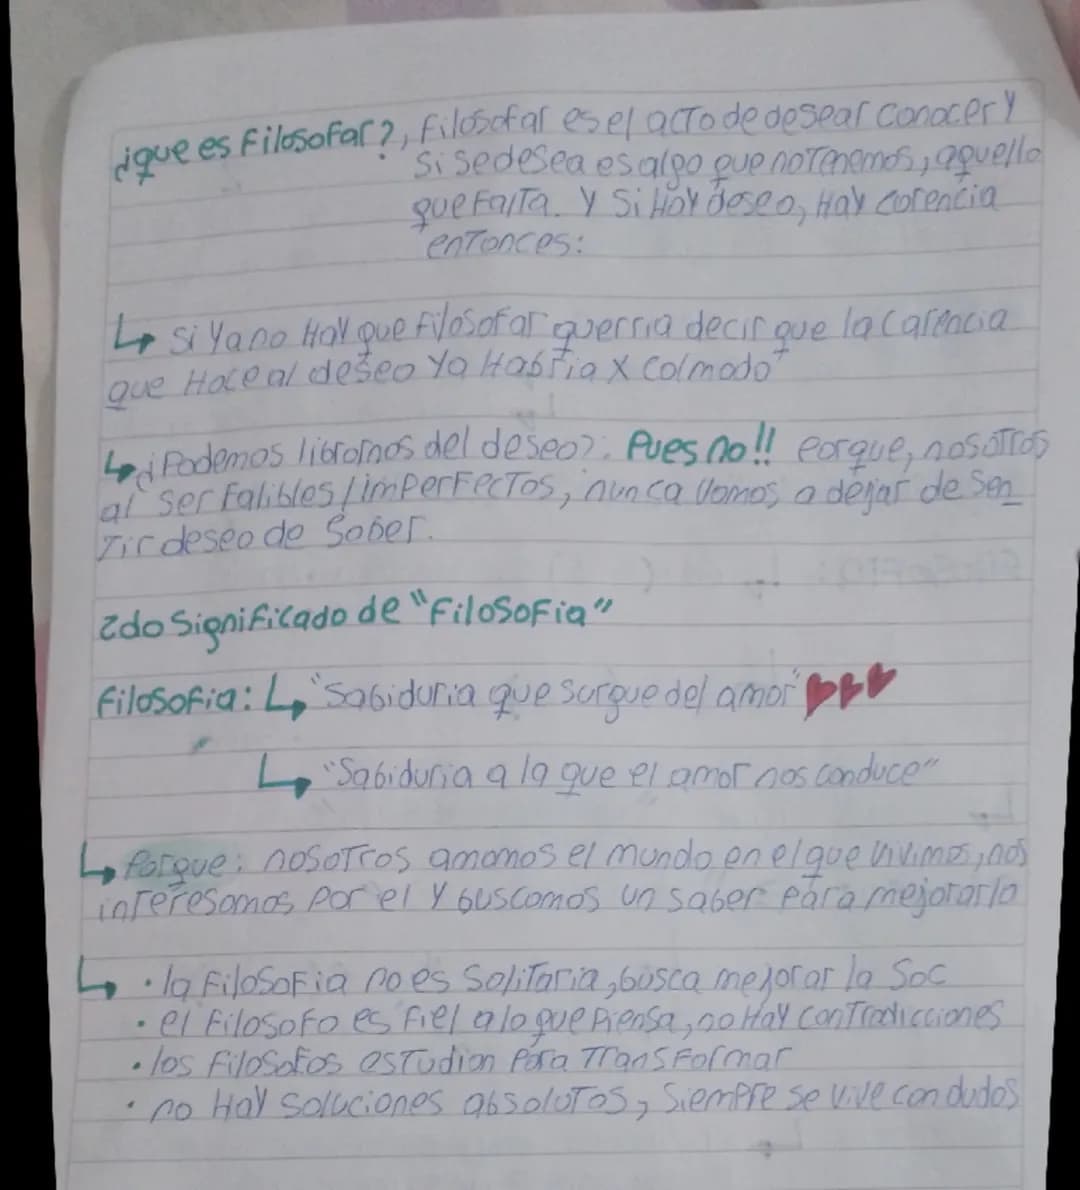 ¿que es Filosofar?, Filosofar es el acto de desear conocer y
si se desea es algo que no tenemos, aquello
que falta. y si Hay deseo, Hay carencia
entonces:
↳ si ya no Hay que filosofar querria decir que la carencia
que Hace al deseo ya Habria x colmado"
↳ ¿Podemos librarnos del deseo?. Pues no!! Porque, nosotros
al ser Falibles/imperfectos, nunca vamos a dejar de sen
tir deseo de Saber.
2do Significado de "Filosofia"
Filosofia: ↳ "Sabiduria que surgue del amor" ♥♥♥
↳ "Sabiduria a la que el amor nos conduce"
↳ Porque: nosotros amamos el mundo en el que vivimos, nos
interesamos por el y buscamos un saber para mejorarlo
↳ • la Filosofia no es Solitaria, busca mejorar la Soc
• el Filosofo es fiel a lo que piensa, no Hay contradicciones
• los Filosofos estudian para Transformar
• no Hay soluciones absolutas, Siempre se vive con dudas